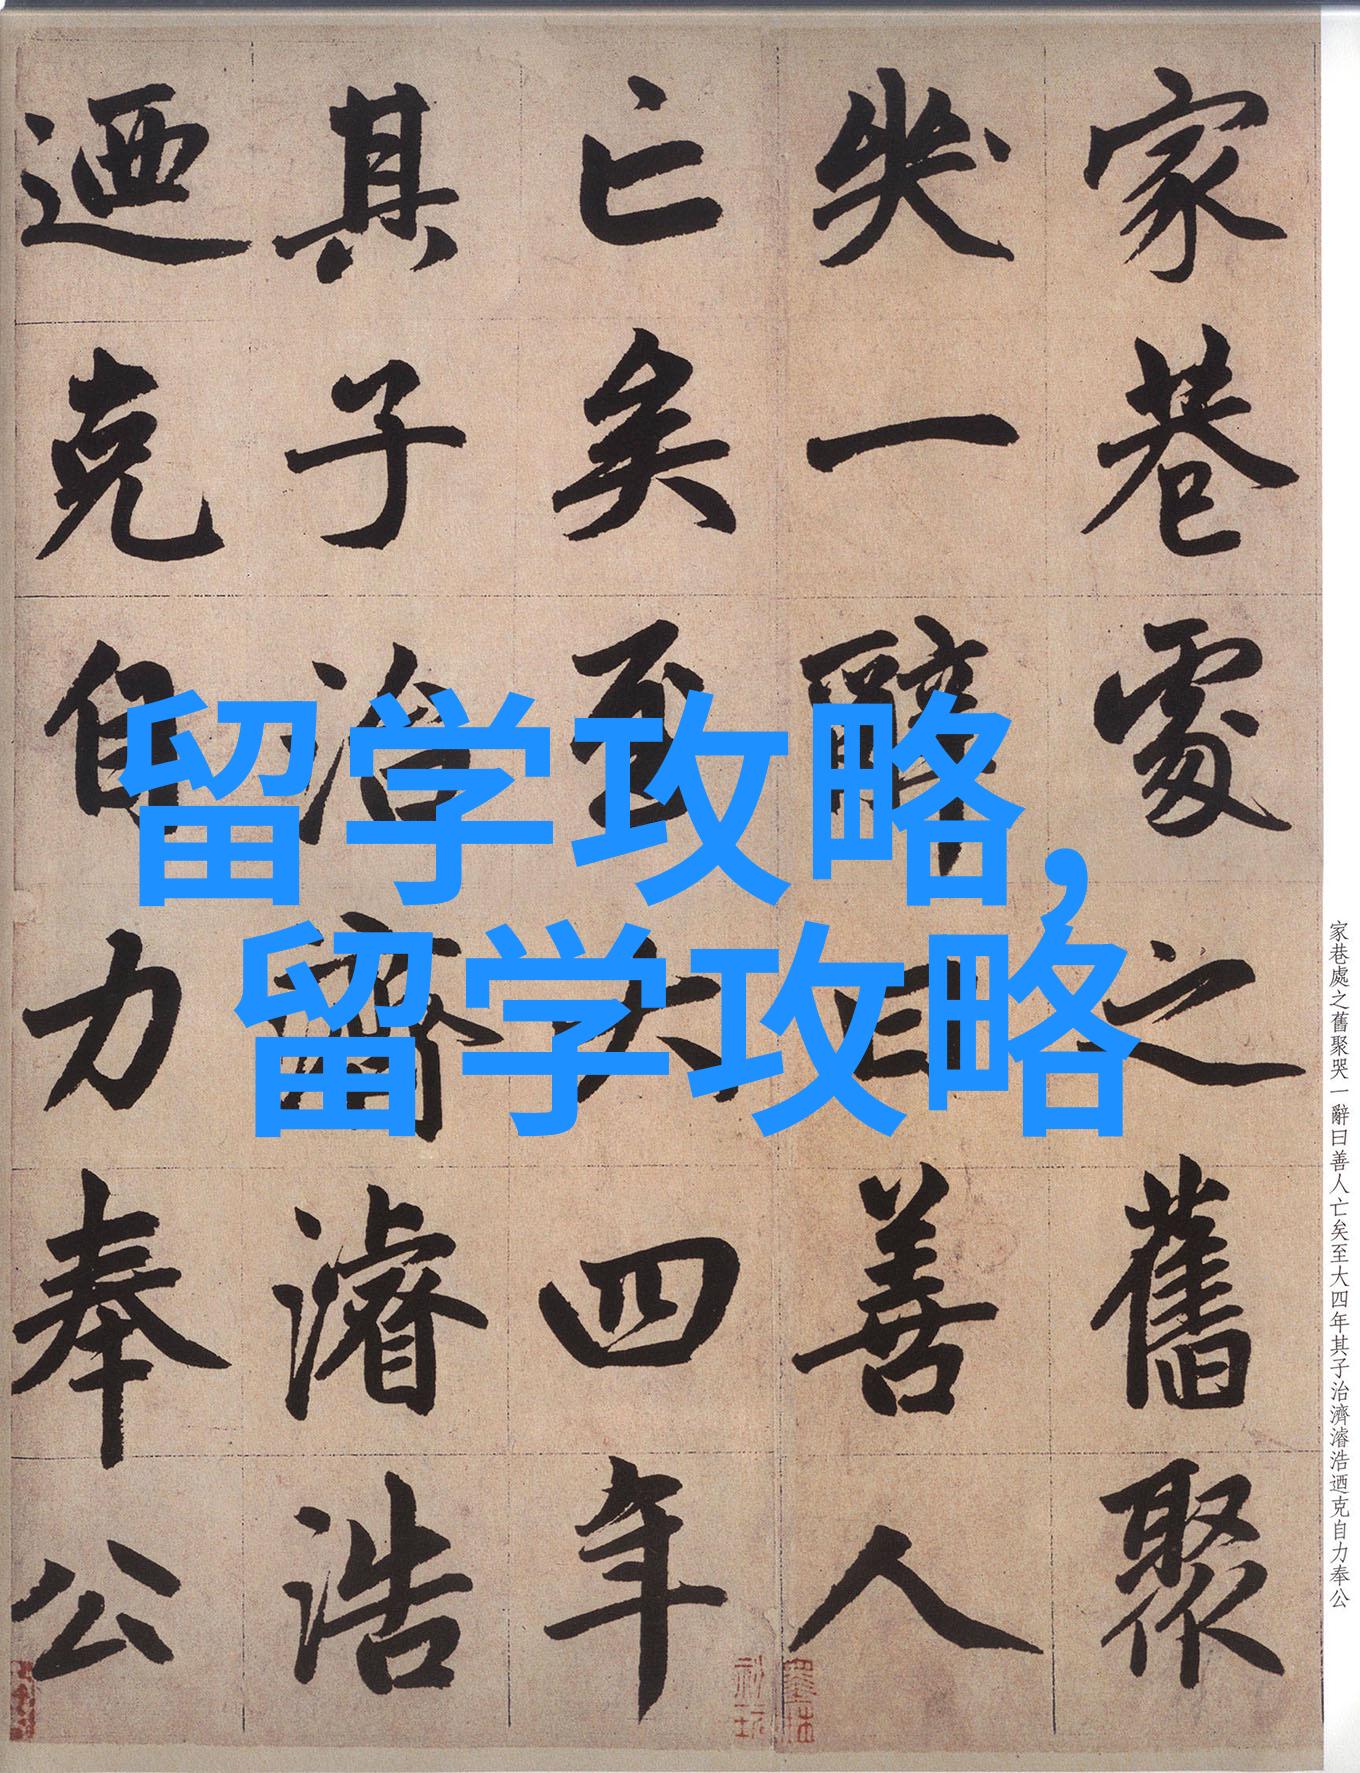 家巷處之舊聚
哭一辭曰善人
亡矣至大四年
其子治濟濬浩
迺克自力奉公
留学攻略,
留学攻略
家巷處之舊聚哭一辭曰善人亡矣至大四年其子治濟濬浩迺克自力奉公